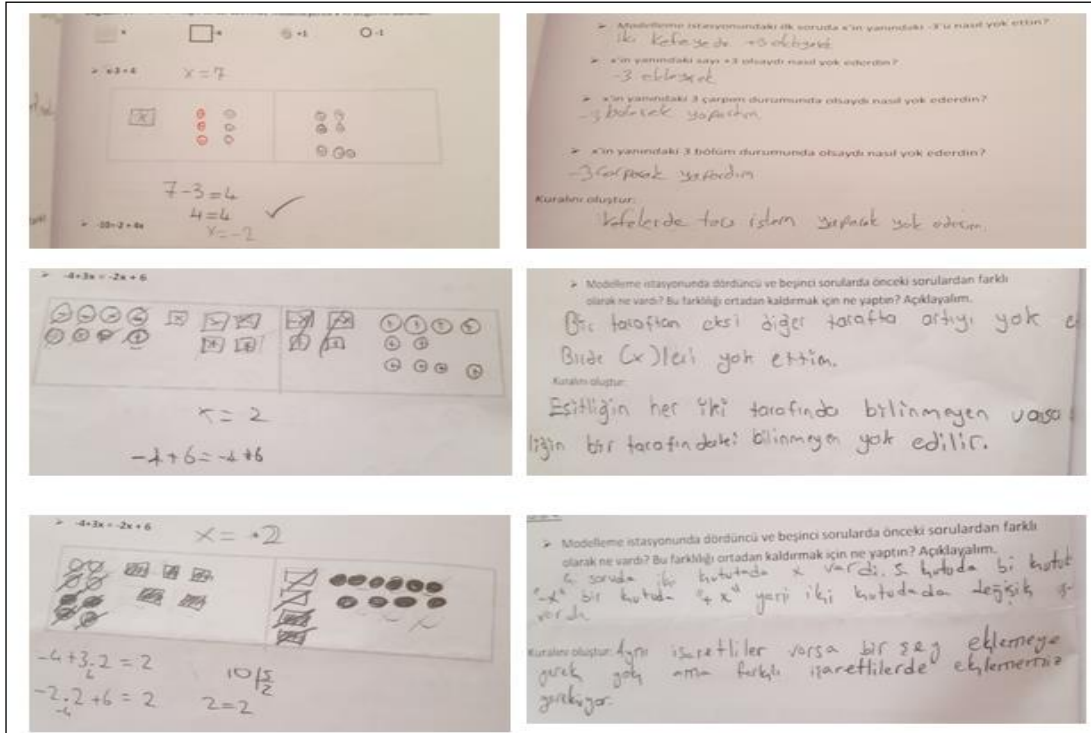 x
-x
+1
-1
x-3=4
x = 7
x
7-3=4
4=4
-10=-2+4x
x=-2
Modelleme istasyonundaki ilk soruda x'in yanındaki -3'ü nasıl yok ettin?
iki kefeyede +3 ekliyerek
x'in yanındaki sayı +3 olsaydı nasıl yok ederdin?
-3 ekleyerek
x'in yanındaki 3 çarpım durumunda olsaydı nasıl yok ederdin?
-3 bölerek yapardım
x'in yanındaki 3 bölüm durumunda olsaydı nasıl yok ederdin?
-3 çarparak yapardım
Kuralını oluştur:
kefelerde ters işlem yaparak yok ederim.
-4+3x = -2x + 6
x = 2
-4+6=-4+6
Modelleme istasyonunda dördüncü ve beşinci sorularda önceki sorulardan farklı
olarak ne vardı? Bu farklılığı ortadan kaldırmak için ne yaptın? Açıklayalım.
Bir taraftan eksi diğer tarafta artıyı yok e
Birde (x)leri yok ettim.
Kuralını oluştur:
Eşitliğin her iki tarafında bilinmeyen varsa
liğin bir tarafındaki bilinmeyen yok edilir.
-4+3x = -2x + 6
x = 2
-4+3.2 = 2
6
-2.2+6 = 2
-4
10 5
2
2=2
Modelleme istasyonunda dördüncü ve beşinci sorularda önceki sorulardan farklı
olarak ne vardı? Bu farklılığı ortadan kaldırmak için ne yaptın? Açıklayalım.
4. soruda iki kutuda x vardı. 5. kutuda bi kutuda
"-x" bir kutuda "+x" yani iki kutudada değişik
vardı
Kuralını oluştur: Aynı işaretliler varsa bir şey eklemeye
gerek yok ama farklı işaretlilerde eklememiz
gerekiyor.